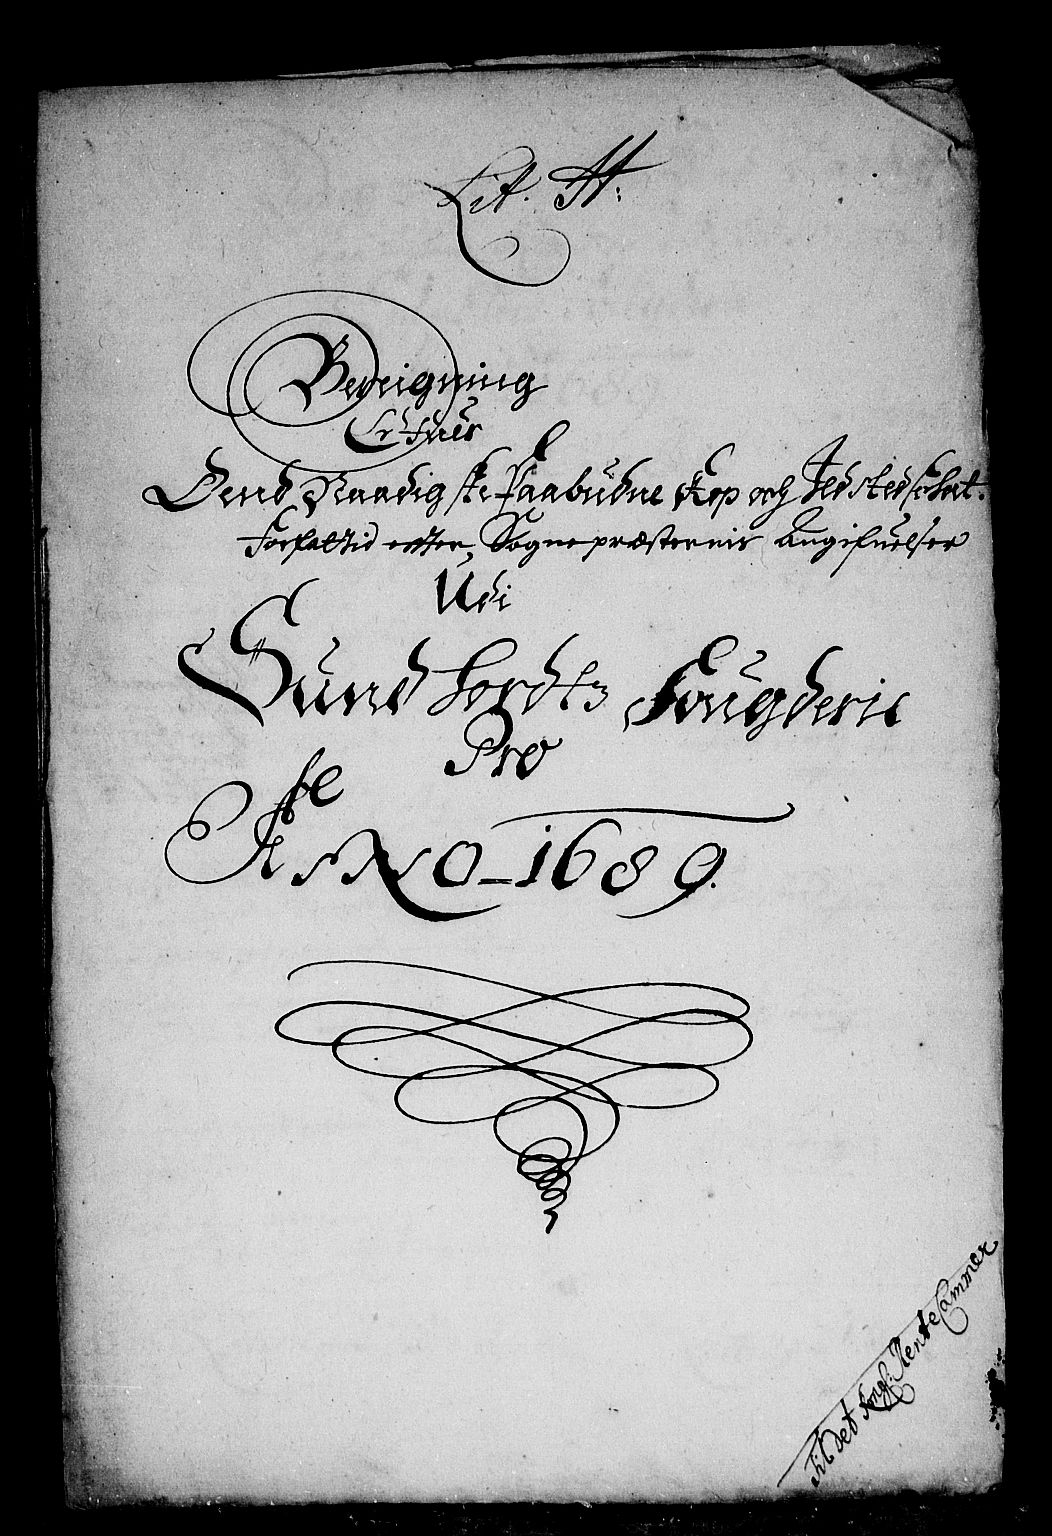 Lit. H:
Beregning
Ofver
Dend Naadigste Paabudne Kop och Ildstedschat.
Forfattid efter Sognepræsternis Angifuelser
Udi
Sundfordtz Fougderie
Pro
Anno 1689.
Til det Kongl: Rente Cammer